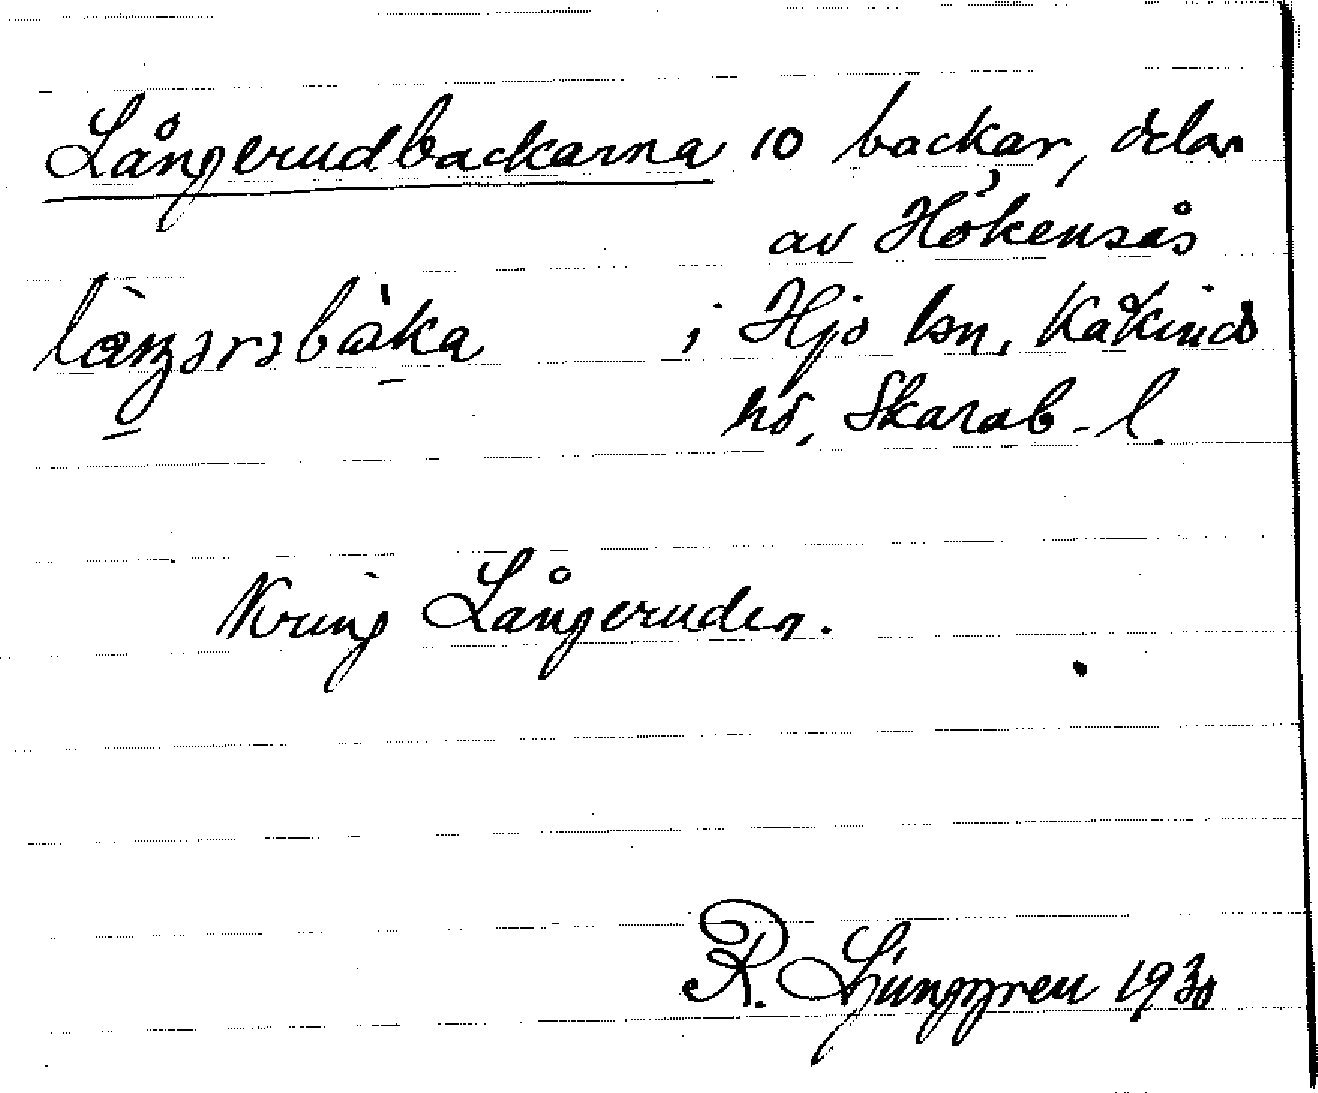 Långerudbackarna 10 backar, delar
av Hökensås
i Hjo lsn, Kåkinds
hd, Skarab. l.
Kring Långeruden.
R. Ljunggren 1930